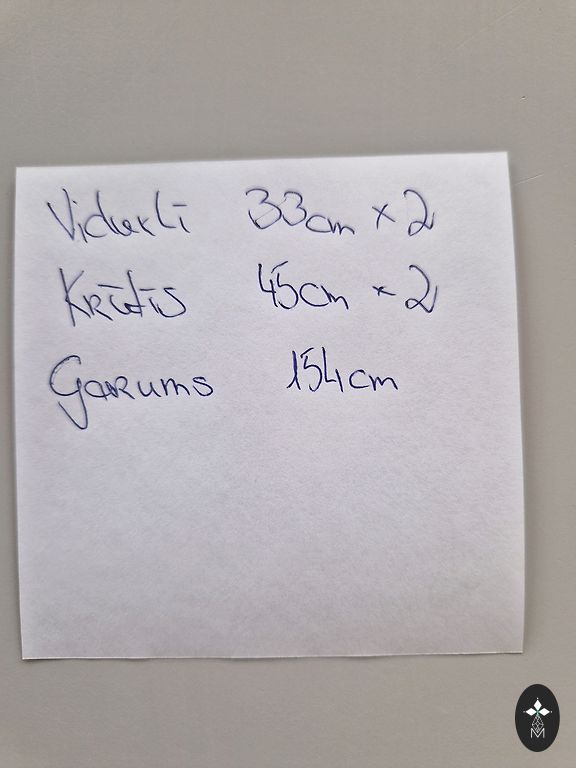 Viduklī 33cm x 2
Krūtīs 45cm x 2
Garums 154cm
M